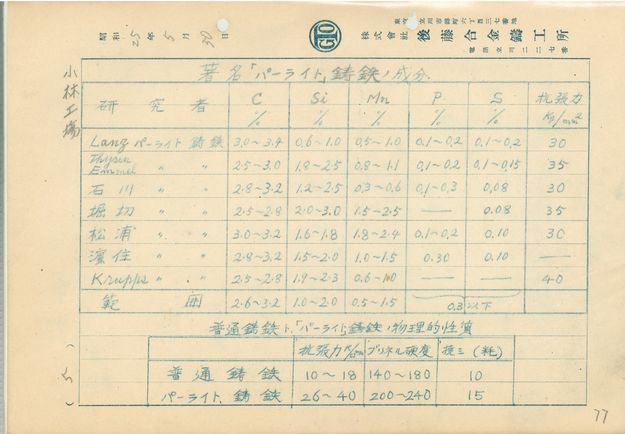 昭和25年5月30日
GTO
東京立川市錦町六丁目三七番地
株式會社 後藤合金鑄工所
電話立川二二二七番
小林工場
著名「パーライト」鋳鉄ノ成分.
研究者 C % Si % Mn % P % S % 抗張力 Kg/mm²
Lanz パーライト鋳鉄 3.0~3.4 0.6~1.0 0.5~1.0 0.1~0.2 0.1~0.2 30
Thysen Emmel 〃 〃 2.5~3.0 1.8~2.5 0.8~1.1 0.1~0.2 0.1~0.15 35
石川 〃 〃 2.8~3.2 1.2~2.5 0.3~0.6 0.1~0.3 0.08 30
堀切 〃 〃 2.5~2.8 2.0~3.0 1.5~2.5 — 0.08 35
松浦 〃 〃 3.0~3.2 1.6~1.8 1.8~2.4 0.1~0.2 0.10 30
濱住 〃 〃 2.8~3.2 1.5~2.0 1.0~1.5 0.30 0.10 —
Krupps 〃 〃 2.5~2.8 1.9~2.3 0.6~1.0 — — 40
範囲 2.6~3.2 1.0~2.0 0.5~1.5 0.3以下
普通鋳鉄ト「パーライト」鋳鉄ノ物理的性質
抗張力 ブリネル硬度 撓ミ(粍)
普通鋳鉄 10~18 140~180 10
パーライト鋳鉄 26~40 200~240 15
77